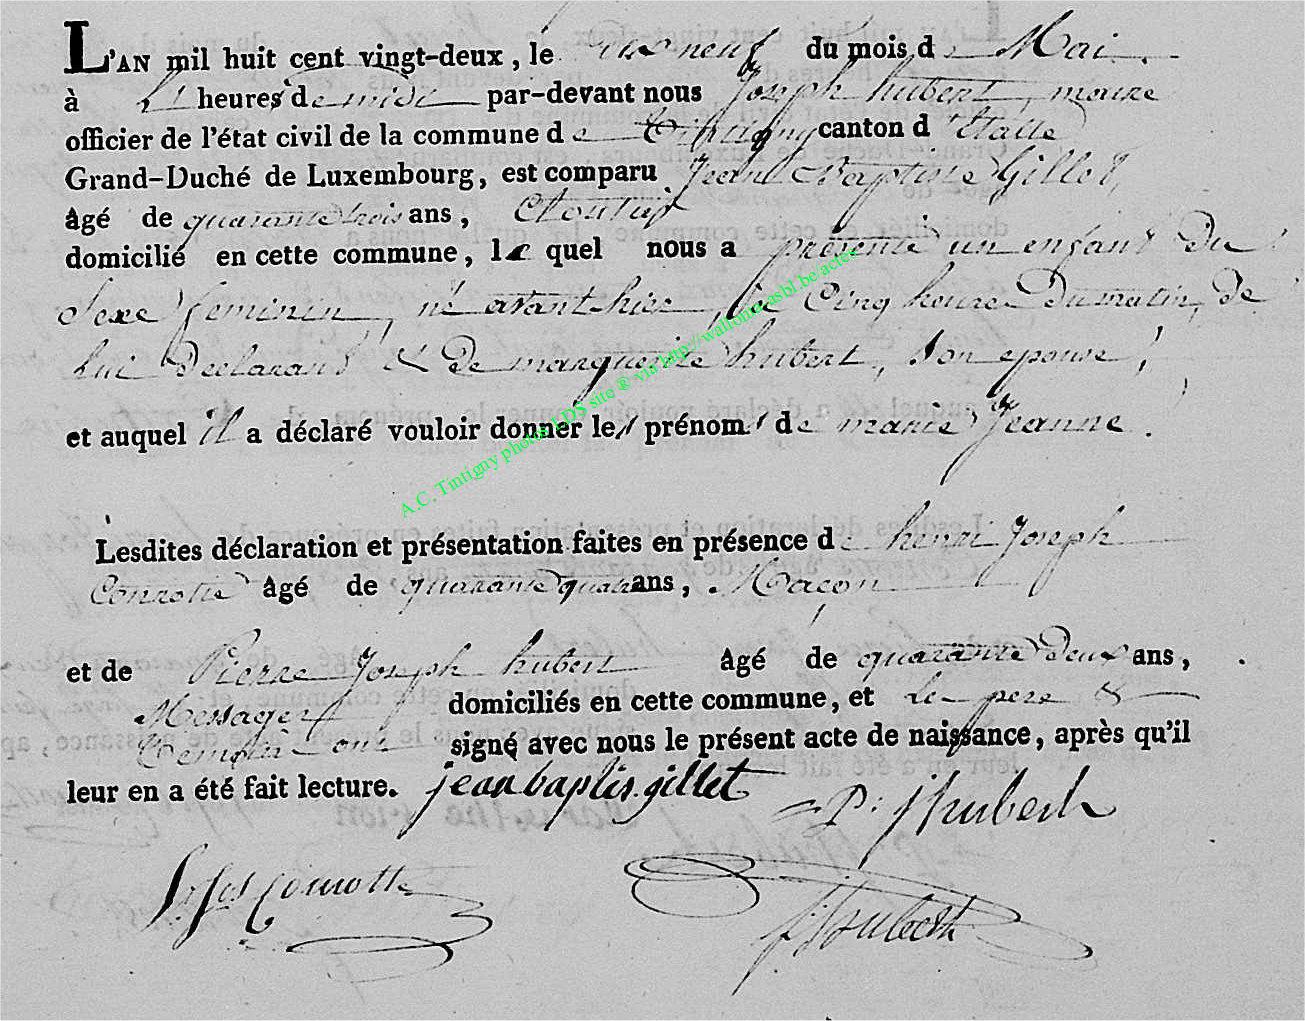 L'AN mil huit cent vingt-deux, le dix neuf du mois de Mai
à heures de midi par-devant nous Joseph hubert, maire
officier de l'état civil de la commune de Tintigny canton d'Etalle
Grand-Duché de Luxembourg, est comparu Jean Baptiste Gillet,
âgé de quarante trois ans, Cloutier
domicilié en cette commune, lequel nous a présenté un enfant du
sexe feminin, né avant hier, à Cinq heures Du matin, de
lui Declarant & De marguerite hubert, son epouse,
et auquel il a déclaré vouloir donner les prénoms de marie Jeanne.
A.C. Tintigny photos LDS site ® via http://wallonia-asbl.be/actes
Lesdites déclaration et présentation faites en présence de henri Joseph
Conrotte âgé de quarante quatre ans, Maçon
et de Pierre Joseph hubert âgé de quarante Deux ans,
Messager domiciliés en cette commune, et le pere &
temoin ont signé avec nous le présent acte de naissance, après qu'il
leur en a été fait lecture. jean baptis. gillet P: J hubert
Conrotte J hubert